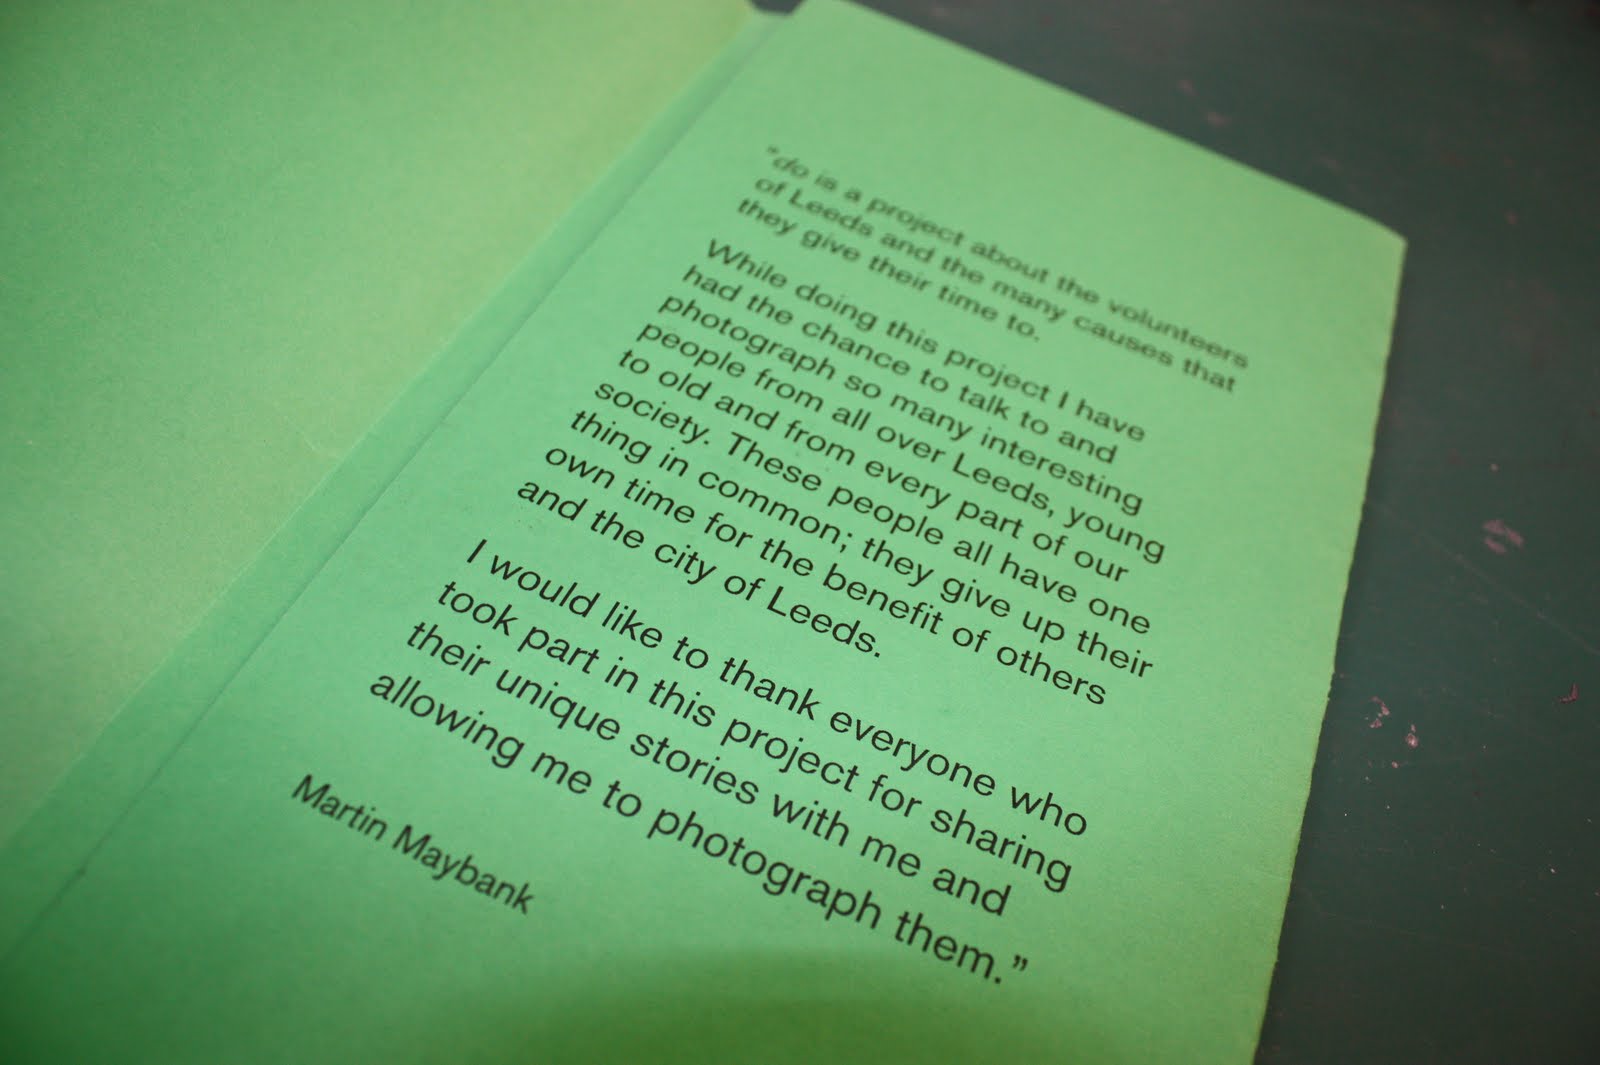 "do is a project about the volunteers
of Leeds and the many causes that
they give their time to.
While doing this project I have
had the chance to talk to and
photograph so many interesting
people from all over Leeds, young
to old and from every part of our
society. These people all have one
thing in common; they give up their
own time for the benefit of others
and the city of Leeds.
I would like to thank everyone who
took part in this project for sharing
their unique stories with me and
allowing me to photograph them.”
Martin Maybank